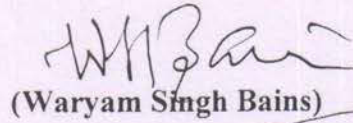 (Waryam Singh Bains)